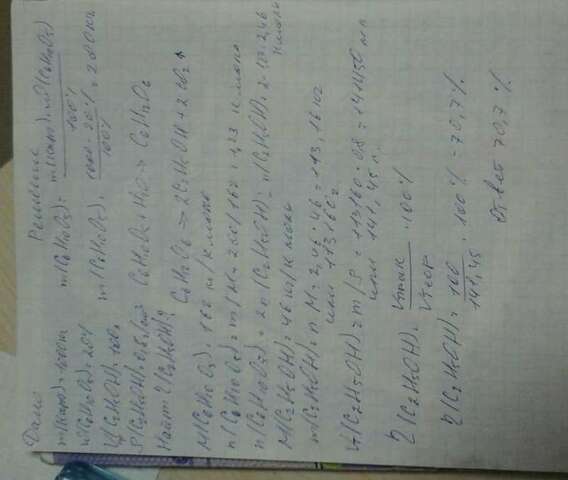 Дано
Решение
m(карт)=1000кг
w(C6H10O5)=20%
V(C2H5OH)=100л
ρ(C2H5OH)=0,8 г/мл
Найти: η(C2H5OH)?
m(C6H10O5)= m(карт)·w(C6H10O5) / 100%
m(C6H10O5)= 1000·20% / 100% = 200кг
C6H10O5+H2O → C6H12O6
C6H12O6 → 2C2H5OH+2CO2↑
M(C6H10O5)=162 кг/кмоль
n(C6H10O5)=m/M=200/162=1,23 кмоль
n(C2H5OH)=2n(C6H10O5)=2·1,23=2,46 кмоль
M(C2H5OH)=46 кг/кмоль
m(C2H5OH)=n·M=2,46·46=113,16 кг
или 113160г
V(C2H5OH)=m/ρ=113160:0,8=141450 мл
или 141,45 л
η(C2H5OH)= Vпрак / Vтеор ·100%
η(C2H5OH)= 100 / 141,45 ·100%=70,7%
Ответ 70,7%